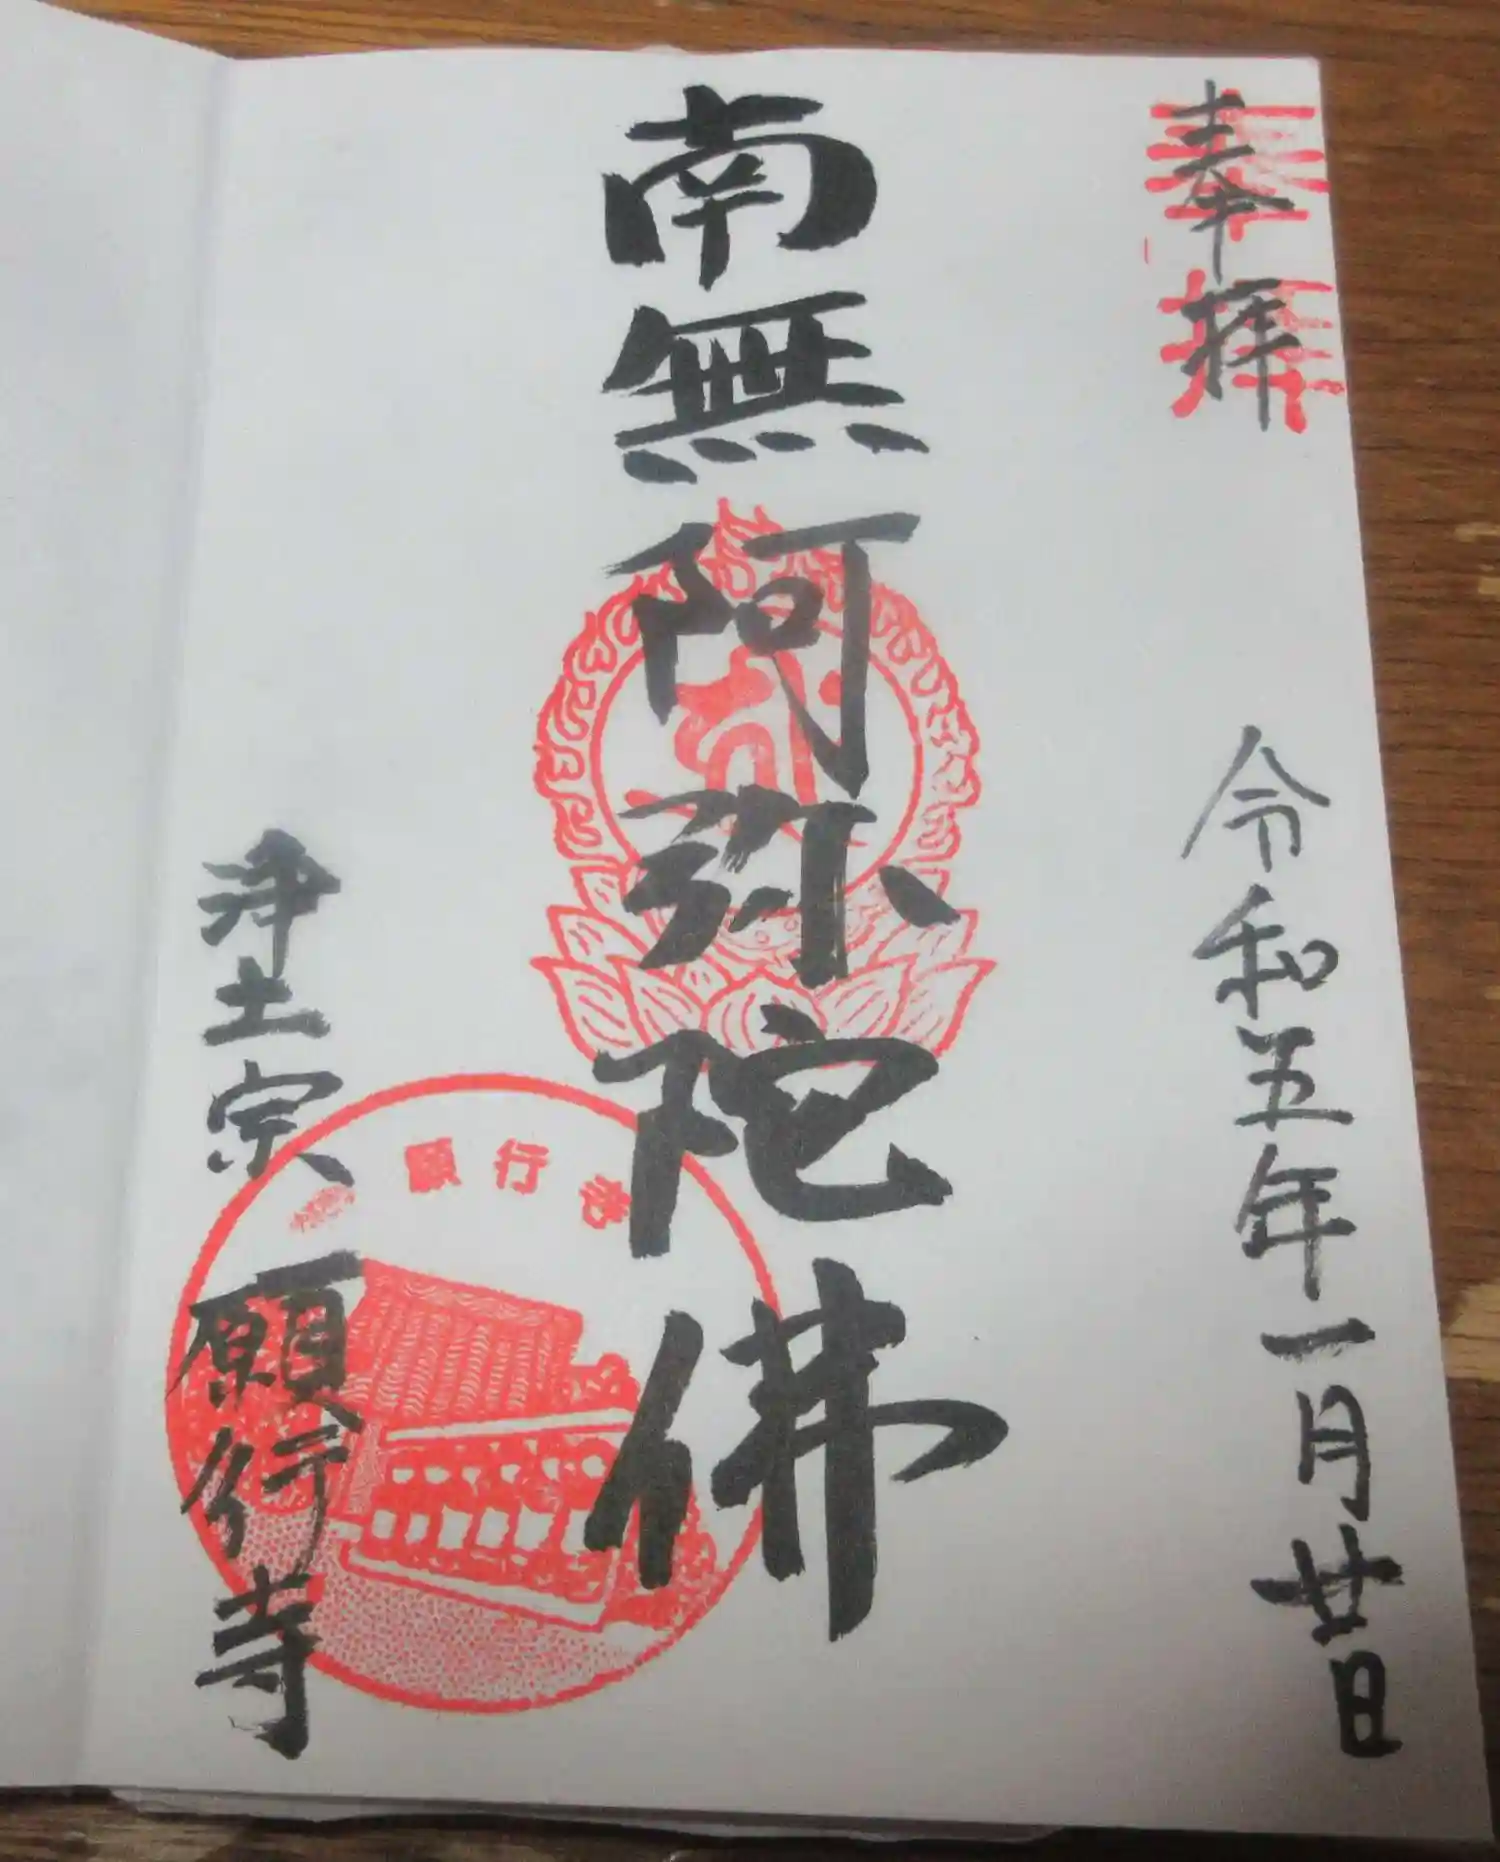 奉拝
令和五年一月廿日
南無阿弥陀佛
浄土宗
願行寺
願行寺